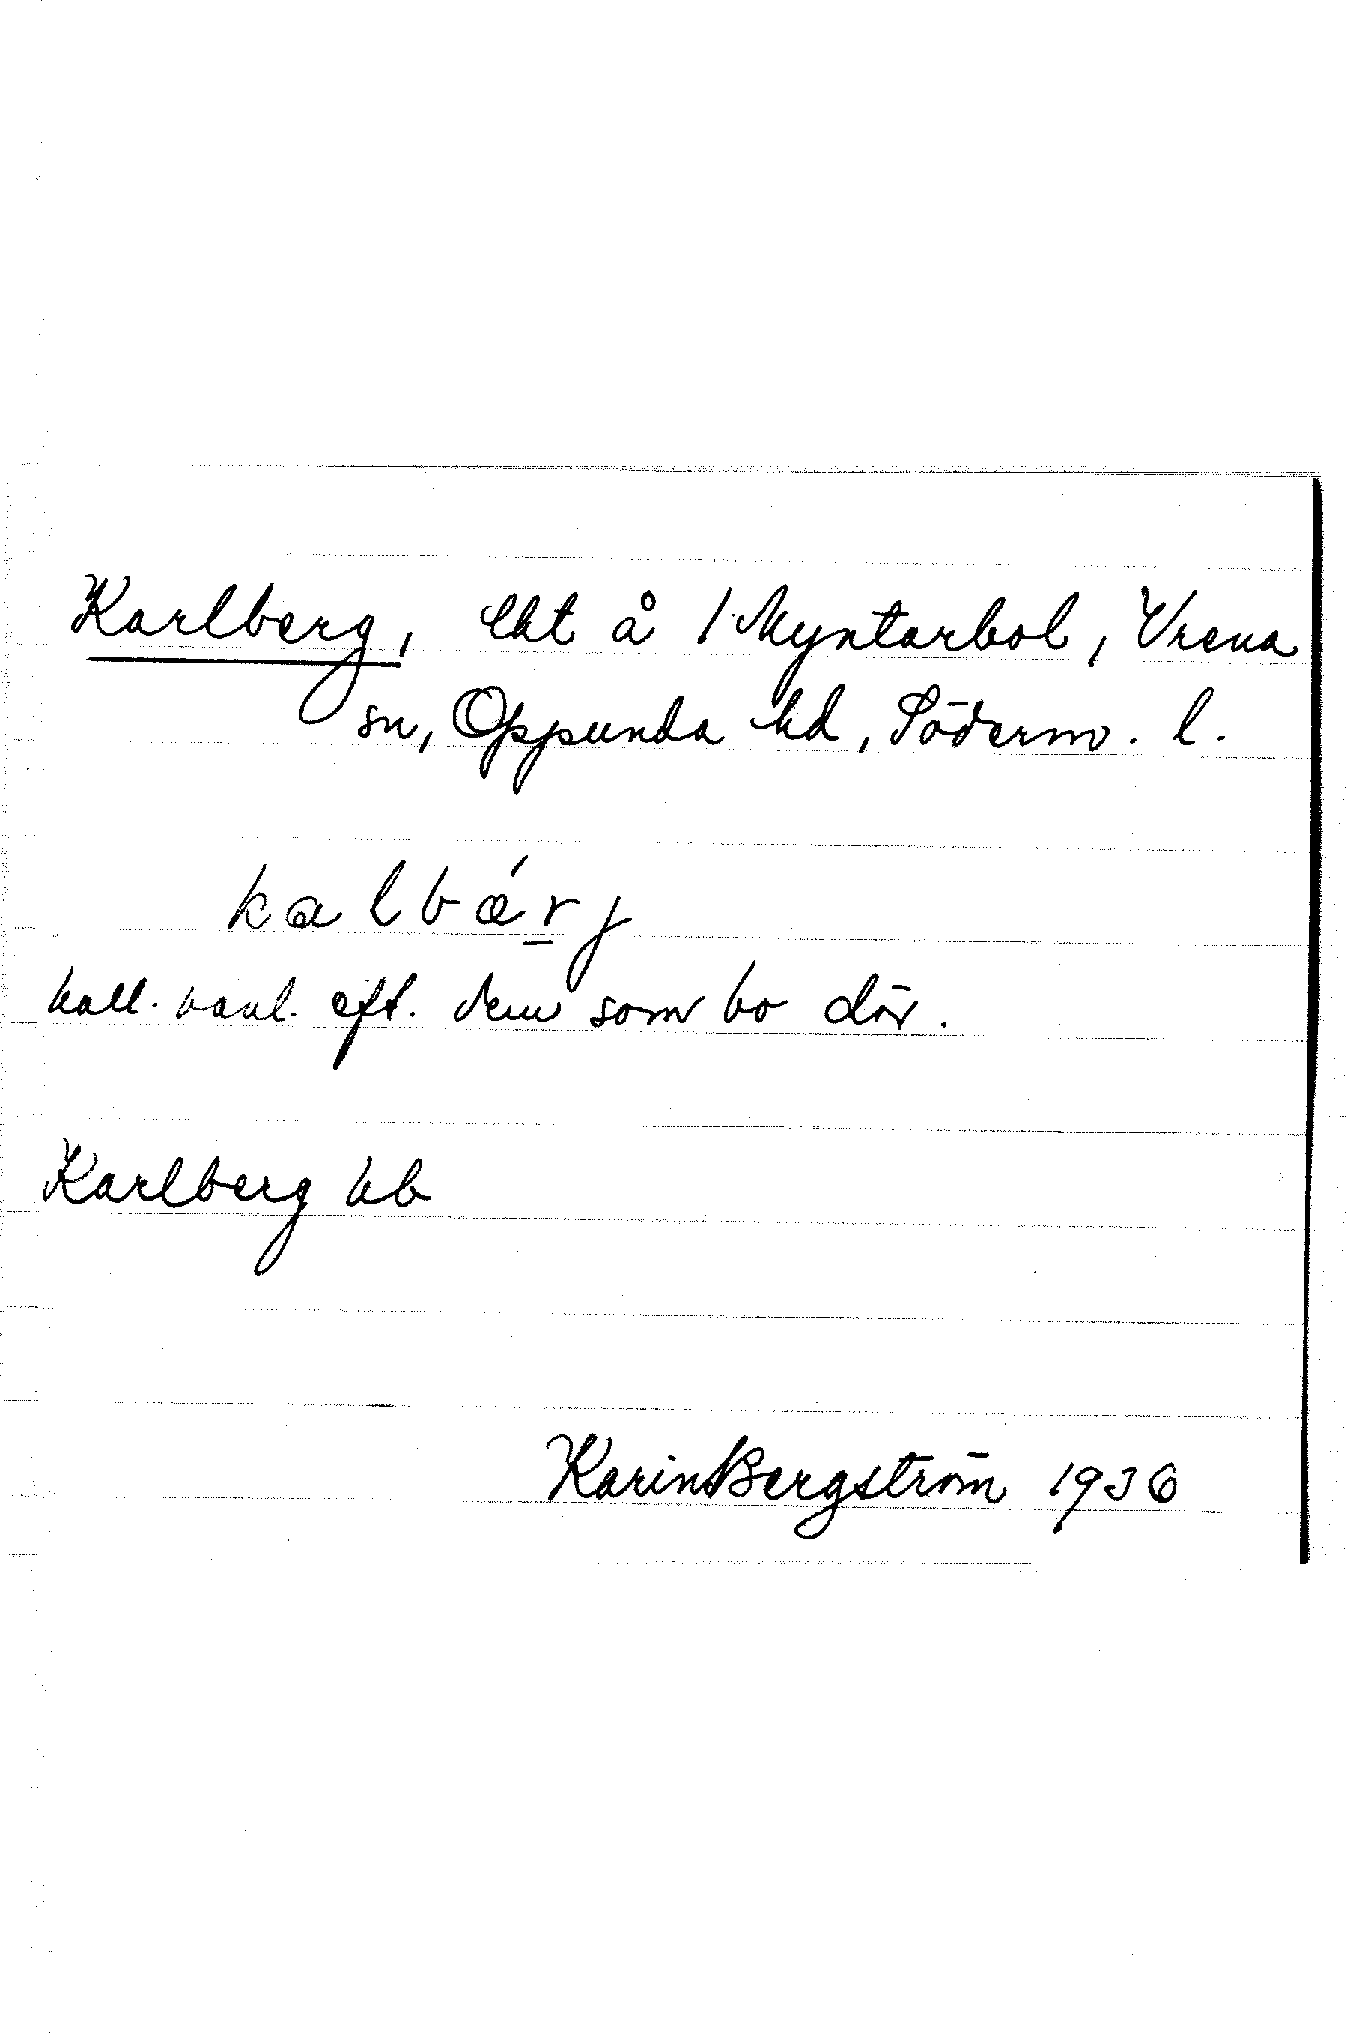 Karlberg, lht å 1 Myntarbol, Vrena
sn, Oppunda hd, Söderm. l.
kalbærj
kall. vanl. eft. dem som bo där.
Karlberg kb
Karin Bergström 1936